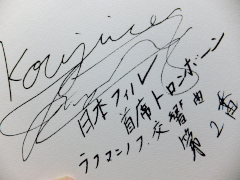 日本フィル
首席トロンボーン
ラフマニノフ交響曲
第2番